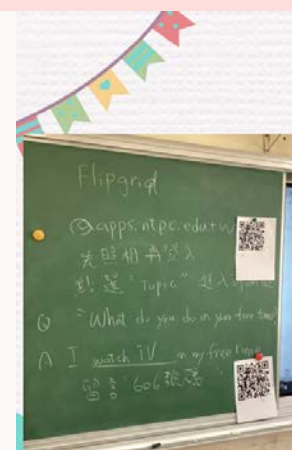 Flipgrid
@apps.ntpc.edu.tw
先照相再登入
點選"Topic"進入
Q "What do you do in your free time?
A I watch TV in my free time
留言"606